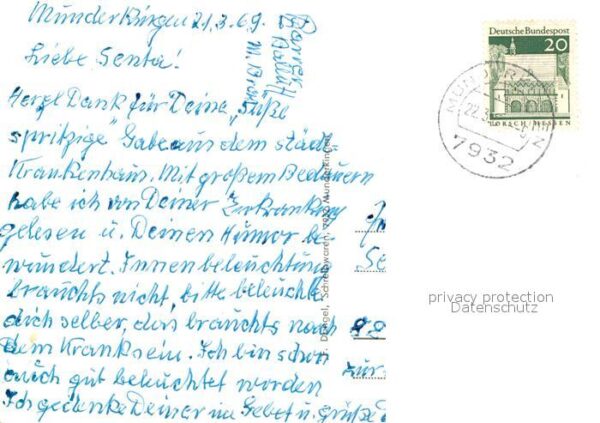 Munderkingen 21.3.69.
Liebe Senta!
Herzl Dank für Deine "süße
spritzige" Gabe aus dem städt.
Krankenhaus. Mit großem Bedauern
habe ich von Deiner Erkrankung
gelesen u. Deinen Humor be-
wundert. Innenbeleuchtung
brauchts nicht, bitte beleuchte
dich selber, das brauchts nach
dem Kranksein. Ich bin schon
auch gut beleuchtet worden
Ich gedenke Deiner im Gebet u. grüße
Pfarrer
Schreibwaren, 7932 Munderkingen
Deutsche Bundespost
20
LORSCH/HESSEN
22.3
7932
privacy protection
Datenschutz